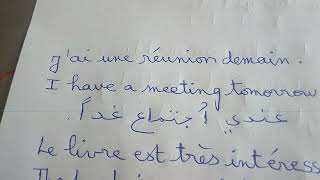 J'ai une réunion demain.
I have a meeting tomorrow
عندي اجتماع غداً.
Le livre est très intéress